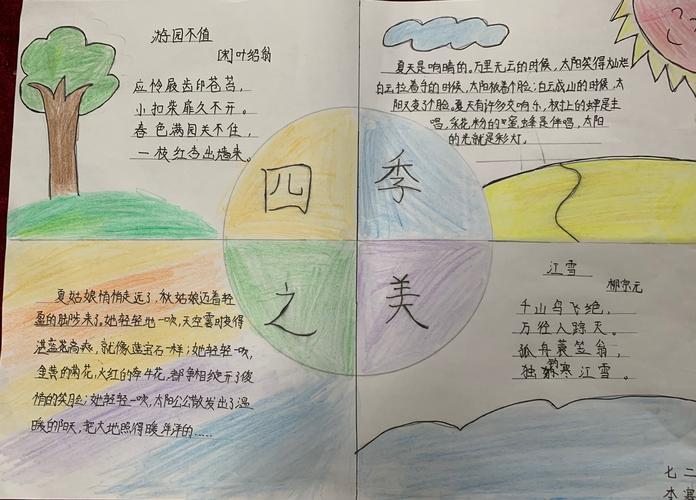 游园不值
[宋]叶绍翁
应怜屐齿印苍苔，
小扣柴扉久不开。
春色满园关不住，
一枝红杏出墙来。
夏天是晴的。万里无云的时候，太阳笑得灿烂
白云拉着手的时候，太阳板着个脸；白云成山的时候，太
阳又变个脸。夏天有许多交响乐，树上的蝉是主
唱，采花粉的蜜蜂是伴唱，太阳
的光就是彩灯。
四季
之美
夏姑娘悄悄走远了，秋姑娘迈着轻
盈的脚步来了。她轻轻地一吹，天空霎时变得
湛蓝，就像蓝宝石一样；她轻轻一吹，
金黄的菊花，大红的牵牛花，都争相绽开了俊
俏的笑脸；她轻轻一吹，太阳公公散发出了温
暖的阳天，把大地照得暖洋洋的……
江雪
柳宗元
千山鸟飞绝，
万径人踪灭。
孤舟蓑笠翁，
独钓寒江雪。
七二